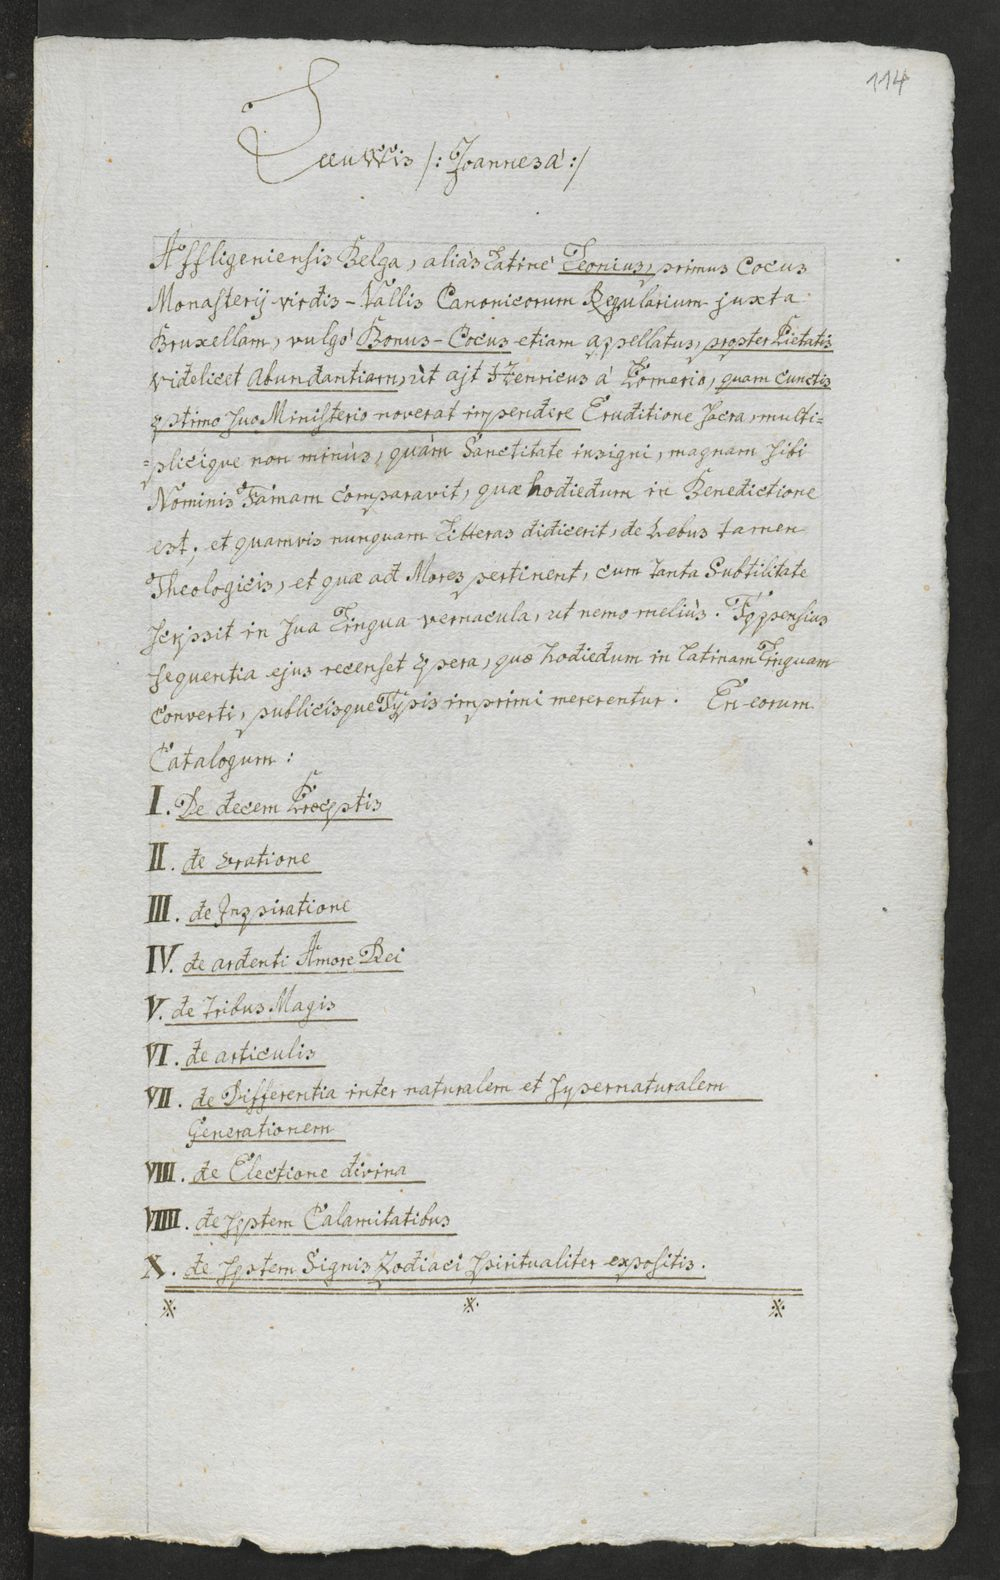 114
Leeuwis /: Joannes à :/
Affligeniensis Belga, aliàs Latinè Leonius, primus Cocus
Monasterij viridis-Vallis Canonicorum Regularium juxta
Bruxellam, vulgò Bonus-Cocus etiam appellatus, propter Pietatis
videlicet abundantiam, ùt ajt Henricus à Pomerio, quam cunctis
optimo suo Ministerio noverat impendere Eruditione sacra, multi=
=plicique non minùs, quàm Sanctitate insigni, magnam sibi
Nominis Famam comparavit, quæ hodiedum in Benedictione
est; et quamvis nunquam Litteras didicerit, de Rebus tamen
Theologicis, et quæ ad Mores pertinent, cum tanta Subtilitate
scripsit in sua Lingua vernacula, ut nemo meliùs. Foppensius
sequentia ejus recenset Opera, quæ hodiedum in Latinam Linguam
converti, publicisque Typis imprimi mererentur. En eorum
Catalogum:
I. De decem Præceptis
II. de Oratione
III. de Inspiratione
IV. de ardenti Amore Dei
V. de tribus Magis
VI. de articulis
VII. de Differentia inter naturalem et supernaturalem
Generationem
VIII. de Electione divina
VIIII. de septem Calamitatibus
X. de septem Signis Zodiaci spiritualiter expositis.